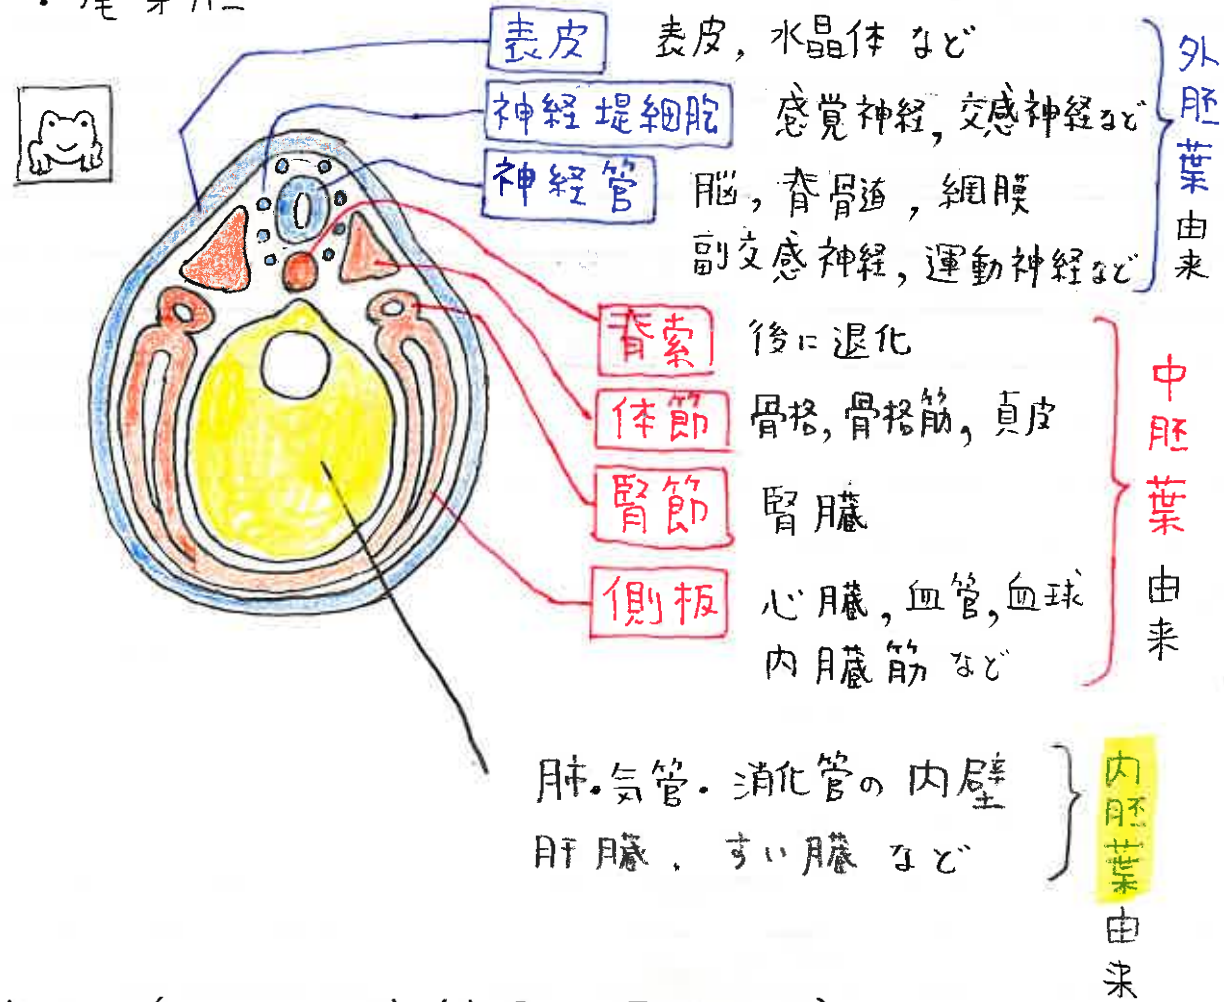 ・尾芽胚
表皮 表皮, 水晶体 など
神経堤細胞 感覚神経, 交感神経など
神経管 脳, 脊骨道, 網膜
副交感神経, 運動神経など
外胚葉由来
脊索 後に退化
体節 骨格, 骨格筋, 真皮
腎節 腎臓
側板 心臓, 血管, 血球
内臓筋 など
中胚葉由来
肺・気管・消化管の内壁
肝臓, すい臓 など
内胚葉由来